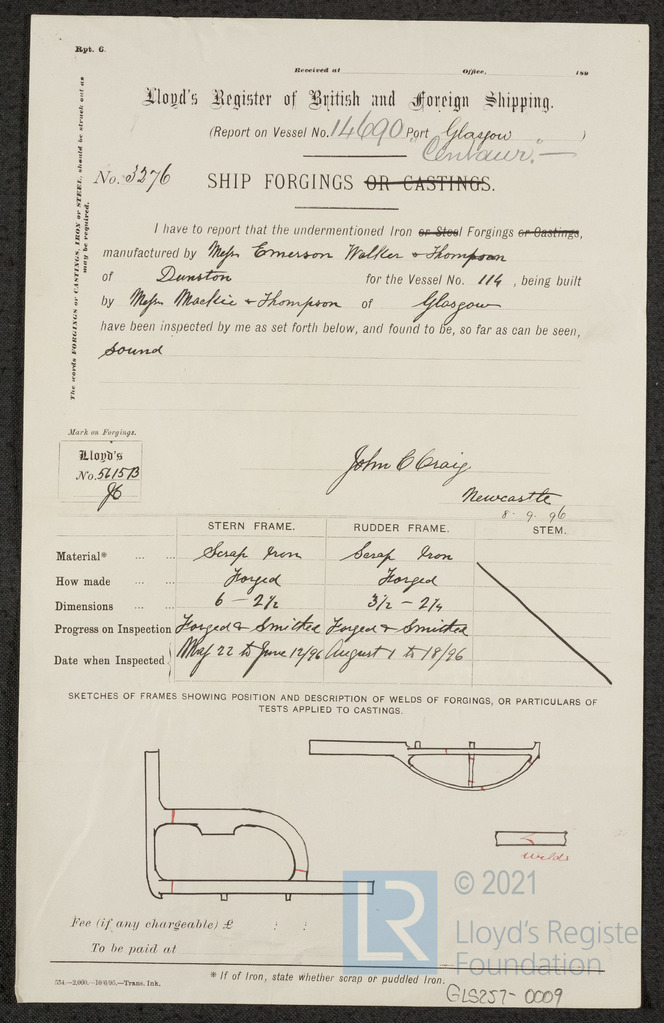 Rpt. 6.
Received at Office, 189
Lloyd's Register of British and Foreign Shipping.
(Report on Vessel No. 14690 Port Glasgow )
"Centaur." —
No. 3276
SHIP FORGINGS OR CASTINGS.
The words FORGINGS or CASTINGS, IRON or STEEL, should be struck out as
may be required.
I have to report that the undermentioned Iron or Steel Forgings or Castings,
manufactured by Messrs Emerson Walker & Thompson
of Dunston for the Vessel No. 114 , being built
by Messrs Mackie & Thompson of Glasgow
have been inspected by me as set forth below, and found to be, so far as can be seen,
sound
Mark on Forgings.
Lloyd's
No. 5615B
John C Craig
Newcastle
8. 9. 96
STERN FRAME. RUDDER FRAME. STEM.
Material* ... ... Scrap Iron Scrap Iron
How made ... ... Forged Forged
Dimensions ... ... 6 – 2½ 3½ – 2¼
Progress on Inspection Forged & Smithed Forged & Smithed
Date when Inspected May 22 to June 12/96 August 1 to 18/96
SKETCHES OF FRAMES SHOWING POSITION AND DESCRIPTION OF WELDS OF FORGINGS, OR PARTICULARS OF
TESTS APPLIED TO CASTINGS.
welds
Fee (if any chargeable) £ : :
To be paid at
* If of Iron, state whether scrap or puddled Iron.
554.—2,000.—10/6/95.—Trans. Ink.
GLS257-0009
LR
© 2021
Lloyd's Register
Foundation